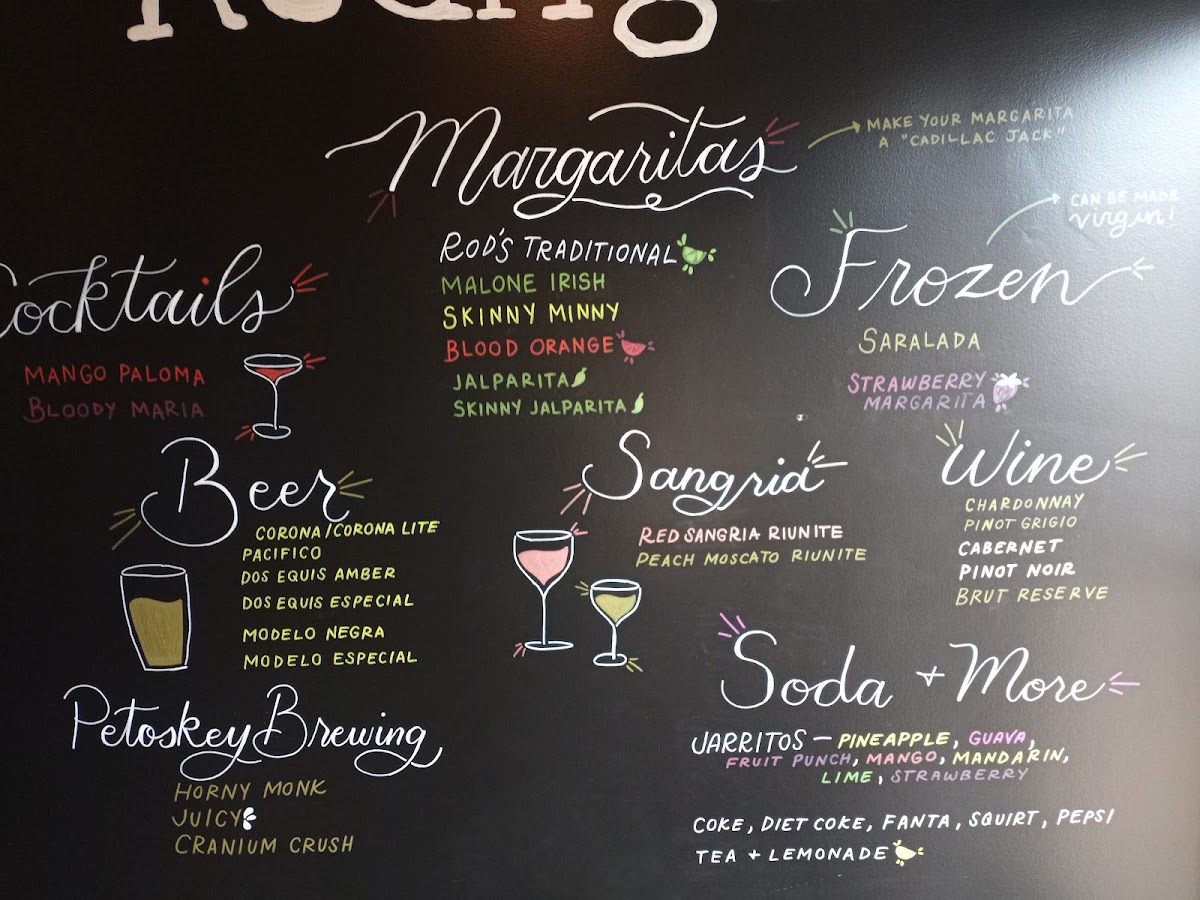 Margaritas
MAKE YOUR MARGARITA
A "CADILLAC JACK"
ROD'S TRADITIONAL
MALONE IRISH
SKINNY MINNY
BLOOD ORANGE
JALPARITA
SKINNY JALPARITA
CAN BE MADE
virgin!
Frozen
SARALADA
STRAWBERRY
MARGARITA
Cocktails
MANGO PALOMA
BLOODY MARIA
Beer
CORONA/CORONA LITE
PACIFICO
DOS EQUIS AMBER
DOS EQUIS ESPECIAL
MODELO NEGRA
MODELO ESPECIAL
Sangria
RED SANGRIA RIUNITE
PEACH MOSCATO RIUNITE
Wine
CHARDONNAY
PINOT GRIGIO
CABERNET
PINOT NOIR
BRUT RESERVE
Petoskey Brewing
HORNY MONK
JUICY
CRANIUM CRUSH
Soda + More
JARRITOS — PINEAPPLE, GUAVA,
FRUIT PUNCH, MANGO, MANDARIN,
LIME, STRAWBERRY
COKE, DIET COKE, FANTA, SQUIRT, PEPSI
TEA + LEMONADE